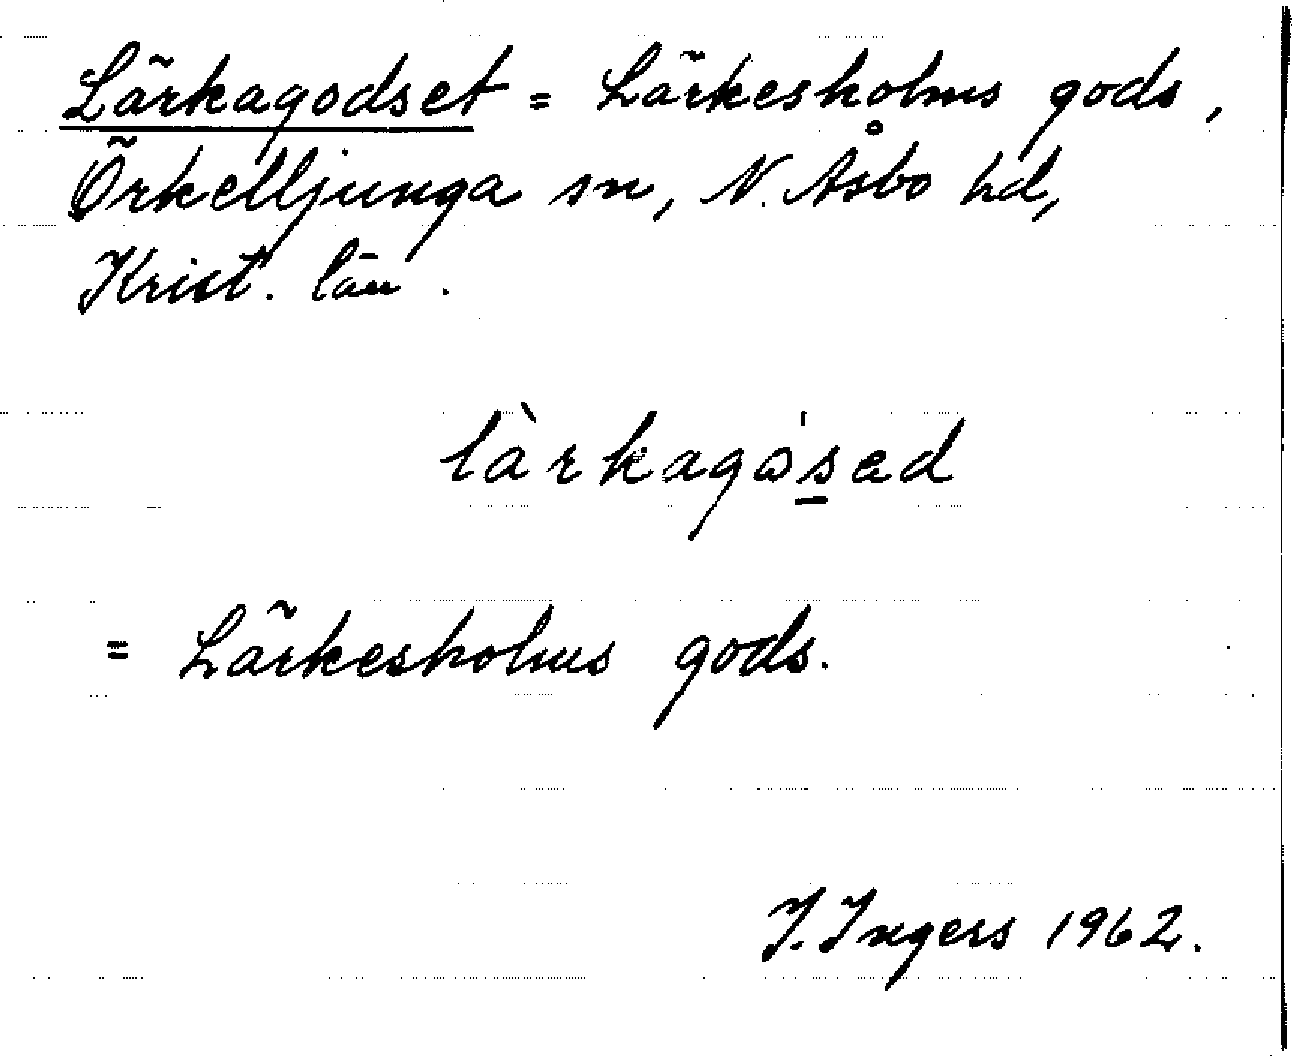 Lärkagodset = Lärkesholms gods,
Örkelljunga sn, N. Åsbo hd,
Krist. län.
làrkagɷ́s̲æd
= Lärkesholms gods.
I. Ingers 1962.